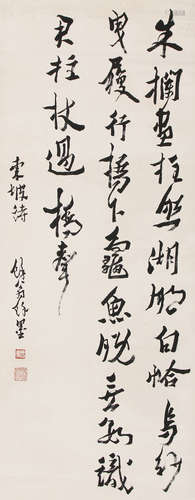 朱欄畫柱照湖明白恰烏紗
曳履行橋下龜魚晚無數識
君拄杖過橋聲
東坡詩